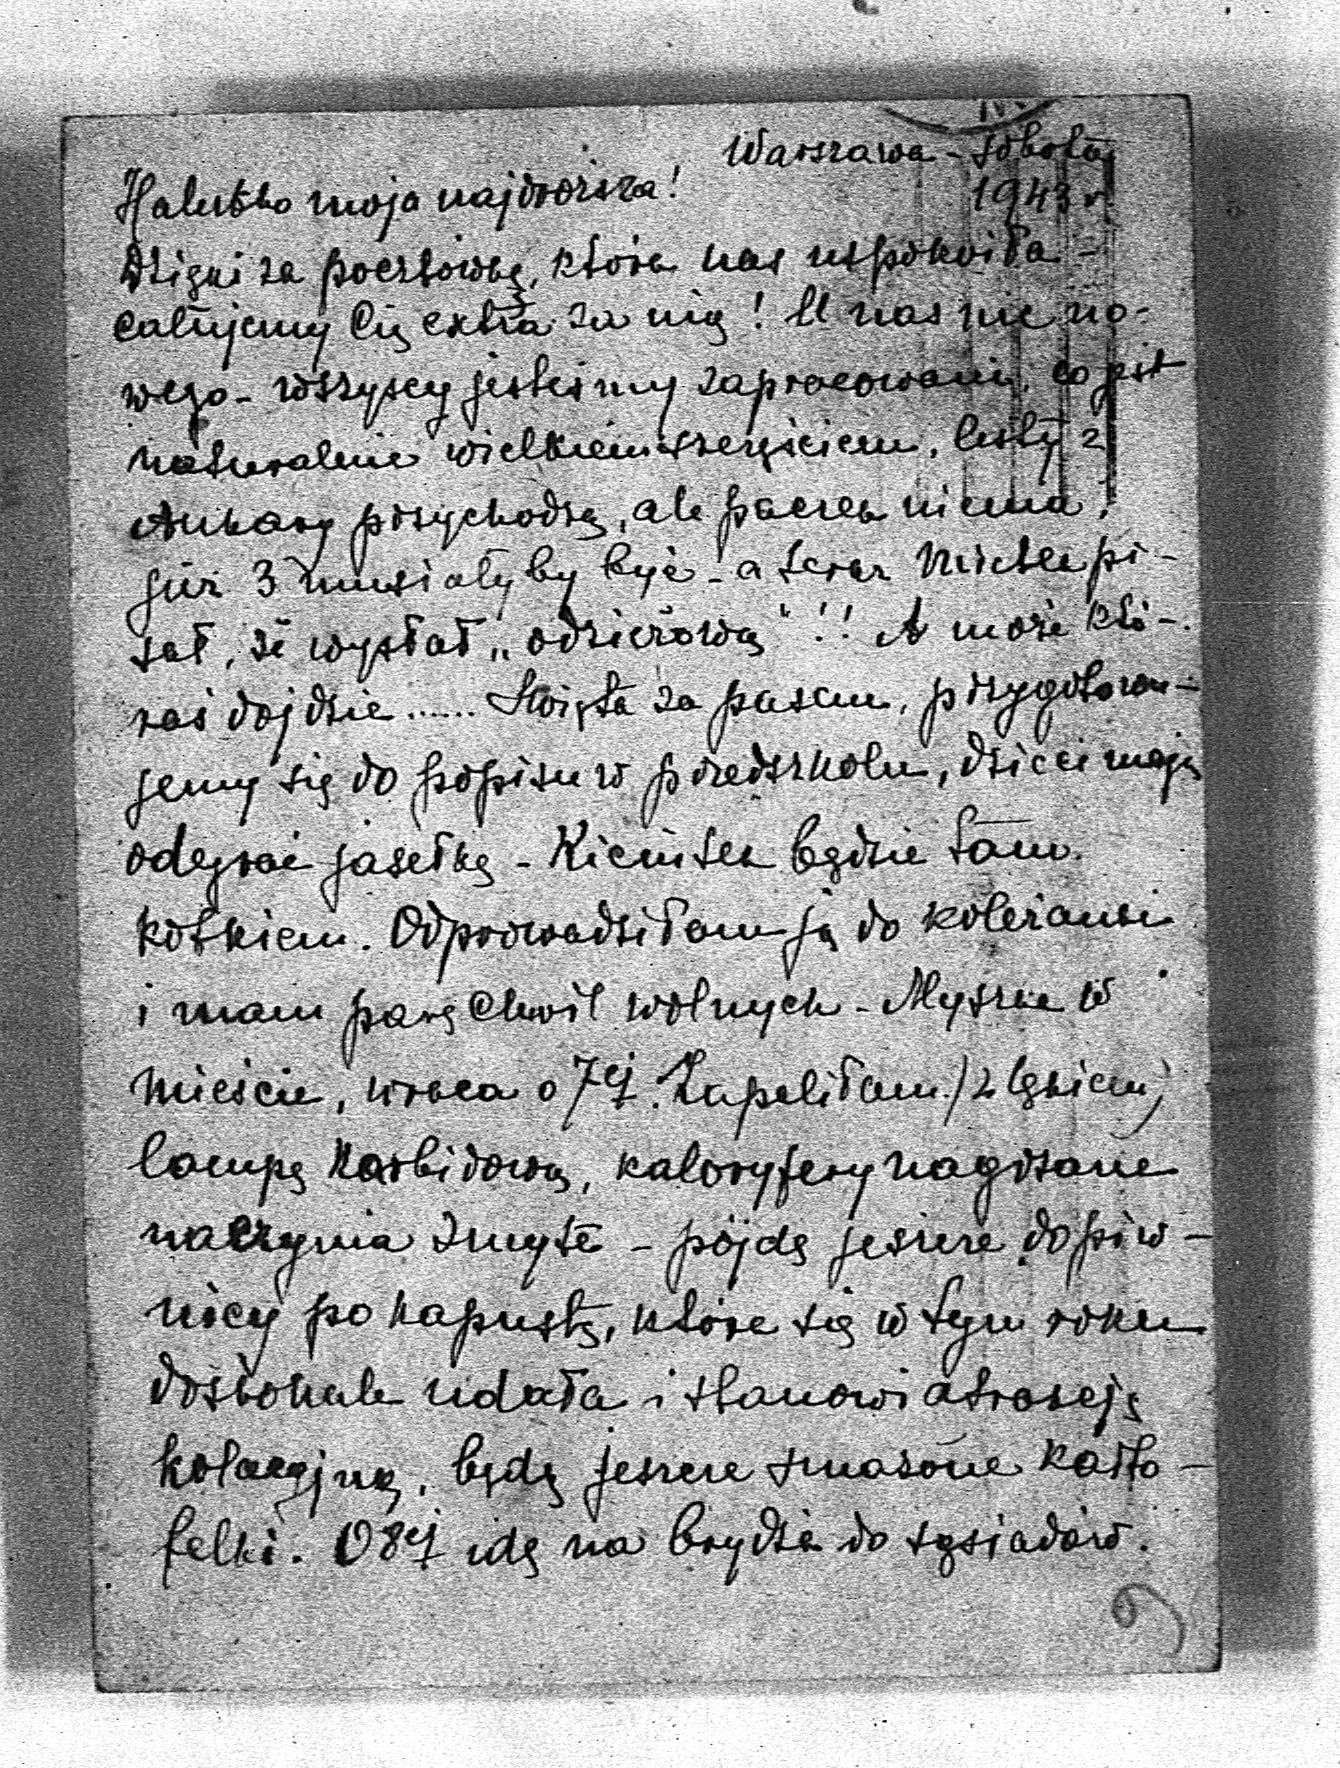 Warszawa - Sobota
1943 r.
Halutko moja najdroższa!
Dzięki za pocztówkę, która nas uspokoiła -
całujemy Cię extra za nią! U nas nic no-
wego - wszyscy jesteśmy zapracowani, co jest
naturalnie wielkiem szczęściem, listy z
Ankary przychodzą, ale paczek niema,
już 3 musiałyby być - a teraz Mietek pi-
sał, że wysłał „odzieżową" !! A może któ-
raś dojdzie ...... Święta za pasem, przygotowu-
jemy się do popisu w przedszkolu, dzieci mają
odegrać jasełkę - będzie tam
kotkiem. Odprowadziłam ją do koleżanki
i mam parę chwil wolnych - Myszka w
mieście, wraca o 7ej. Zapaliłam /z lękiem/
lampę karbidową, kaloryfery nagrzane
naczynia zmyte - pójdę jeszcze do piw-
nicy po kapustę, która się w tym roku
doskonale udała i stanowi atrakcję
kolacyjną, będą jeszcze smażone karto-
felki. O 8ej idę na brydża do sąsiadów.
9